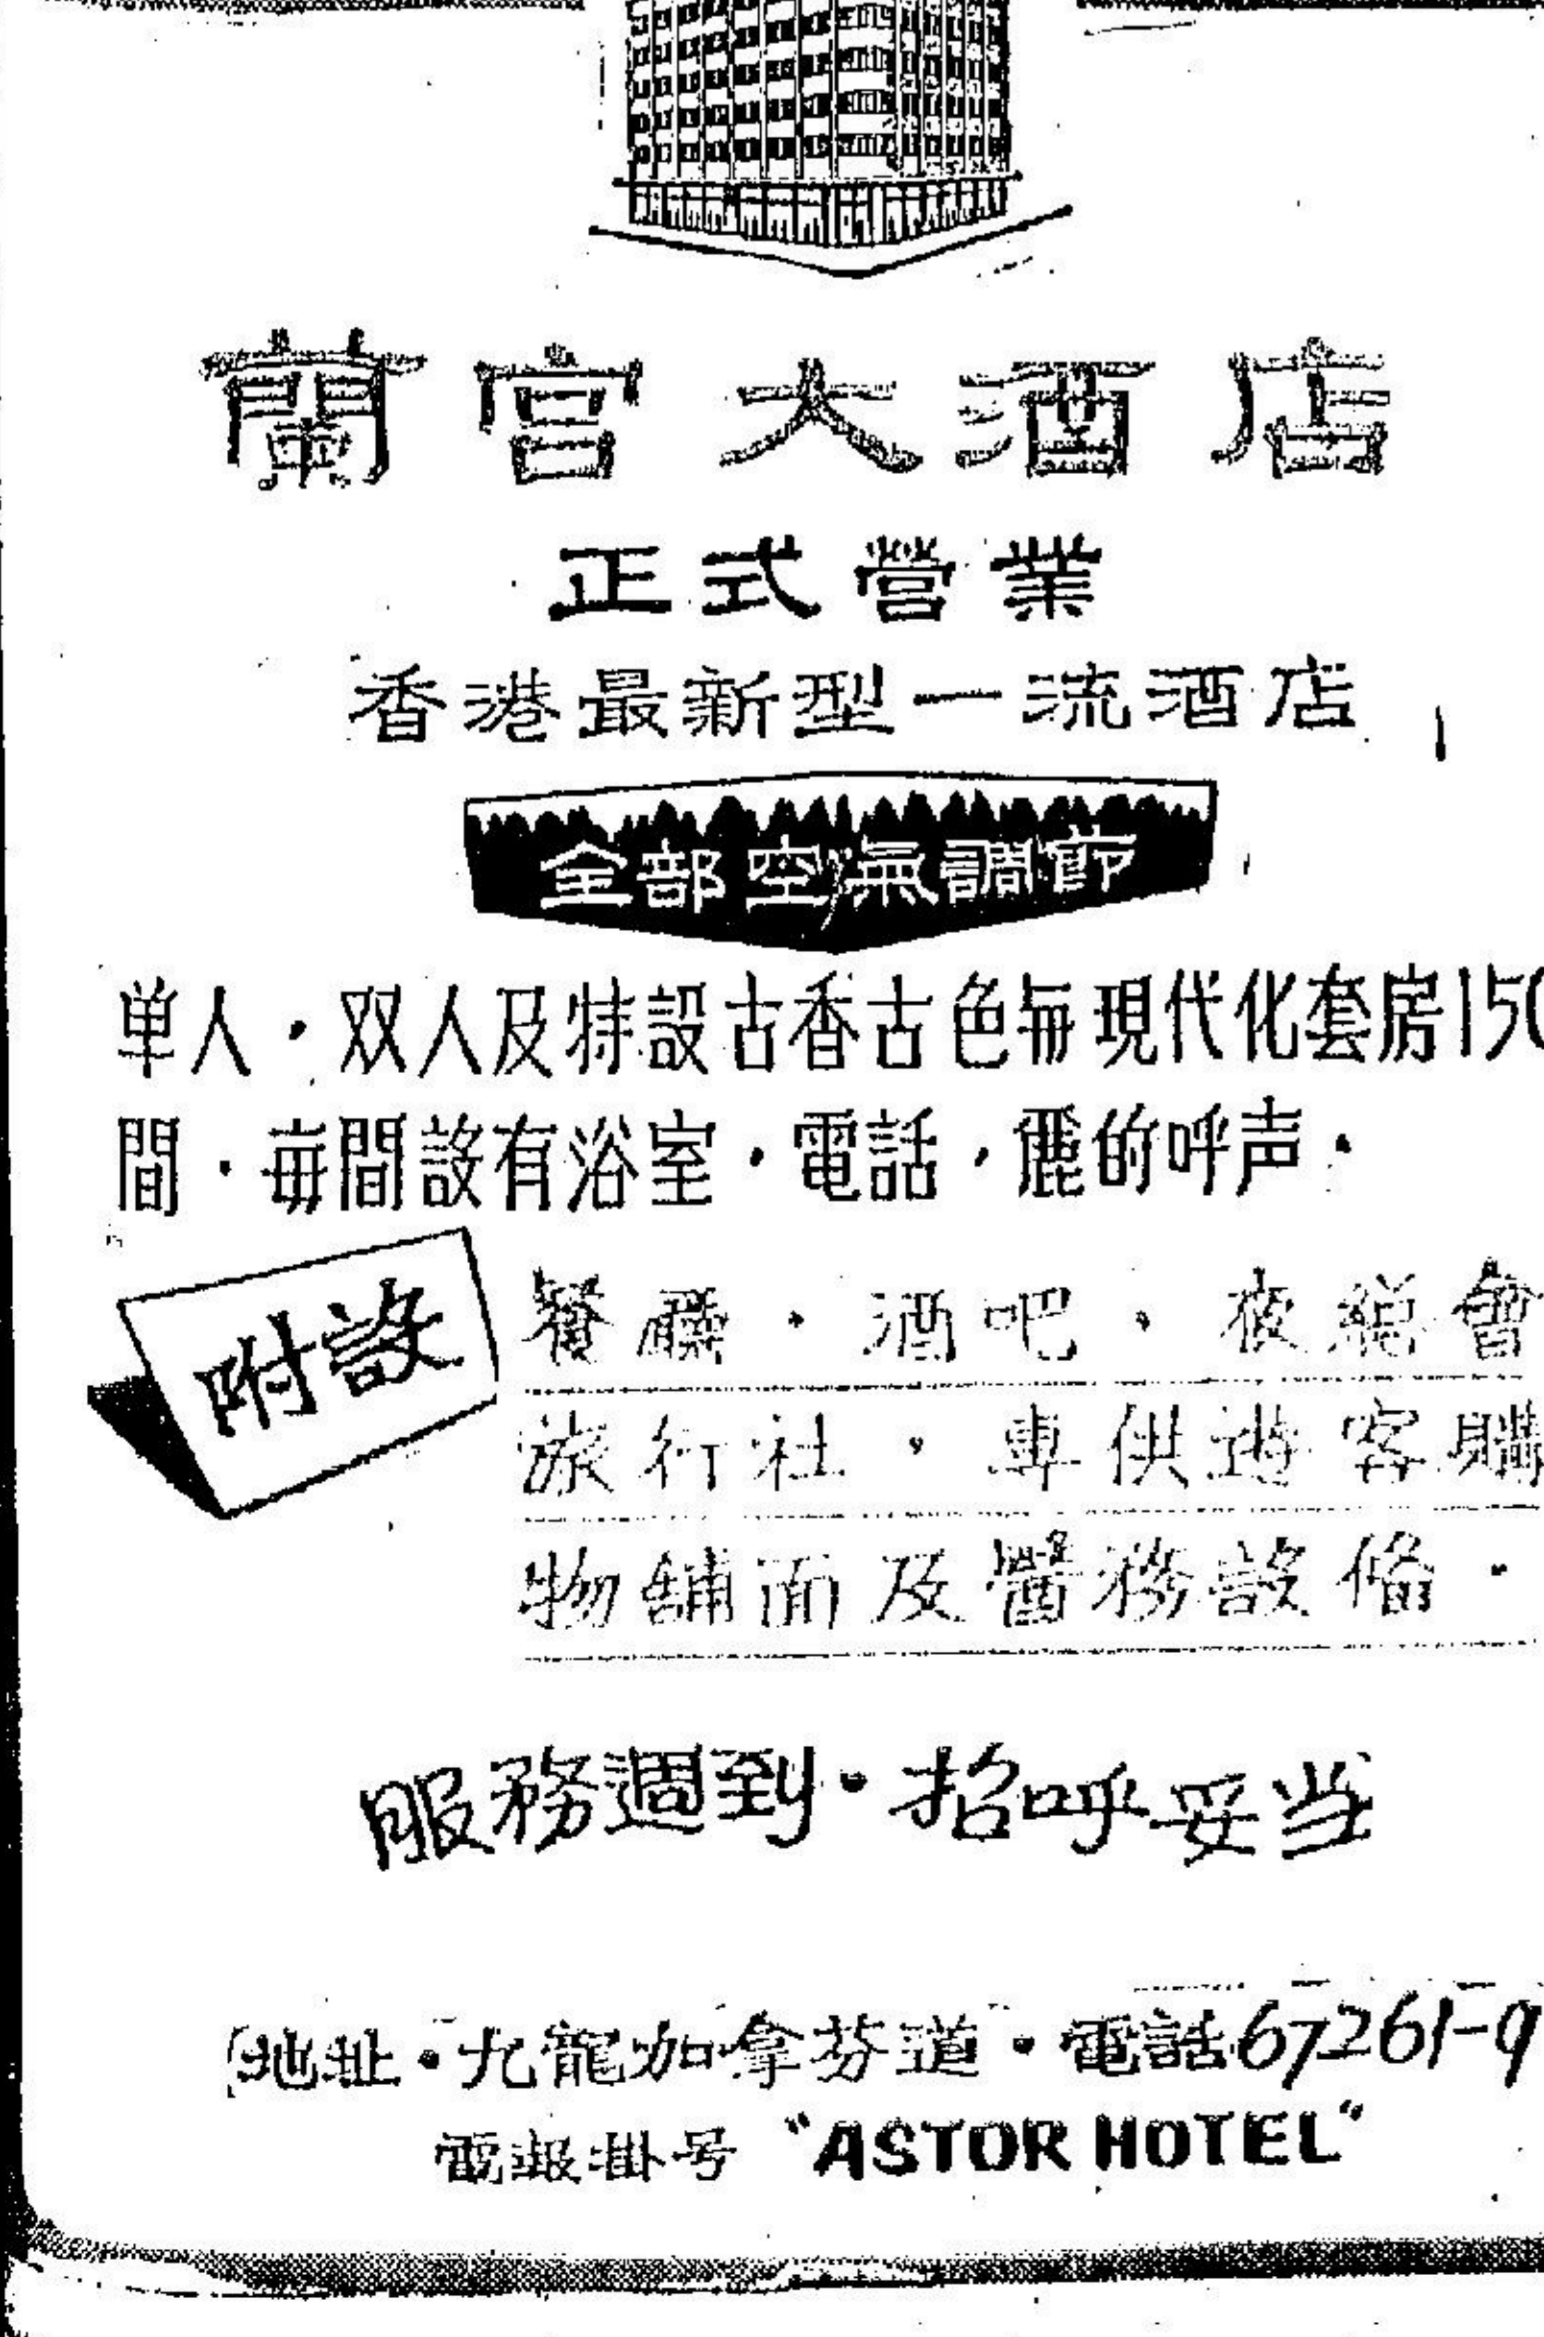 蘭宮大酒店
正式營業
香港最新型一流酒店
全部空氣調節
单人・双人及特設古香古色每現代化套房150
間・每間設有浴室・電話，麗的呼声・
附設
餐廳・酒吧、夜總會
旅行社，專供遊客購
物舖面及醫務設俻・
服務週到・招呼妥当
地址・九龍加拿芬道・電話67261-9
電报掛号 "ASTOR HOTEL"